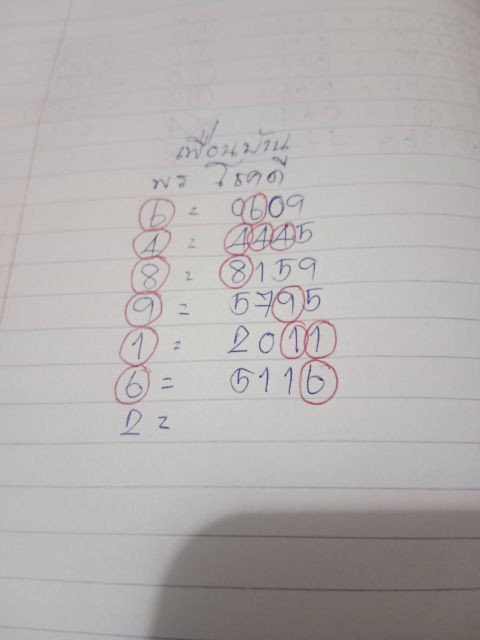 เพื่อนบ้าน
พร โชคดี
6 = 0609
4 = 4445
8 = 8159
9 = 5795
1 = 2011
6 = 5116
2 =